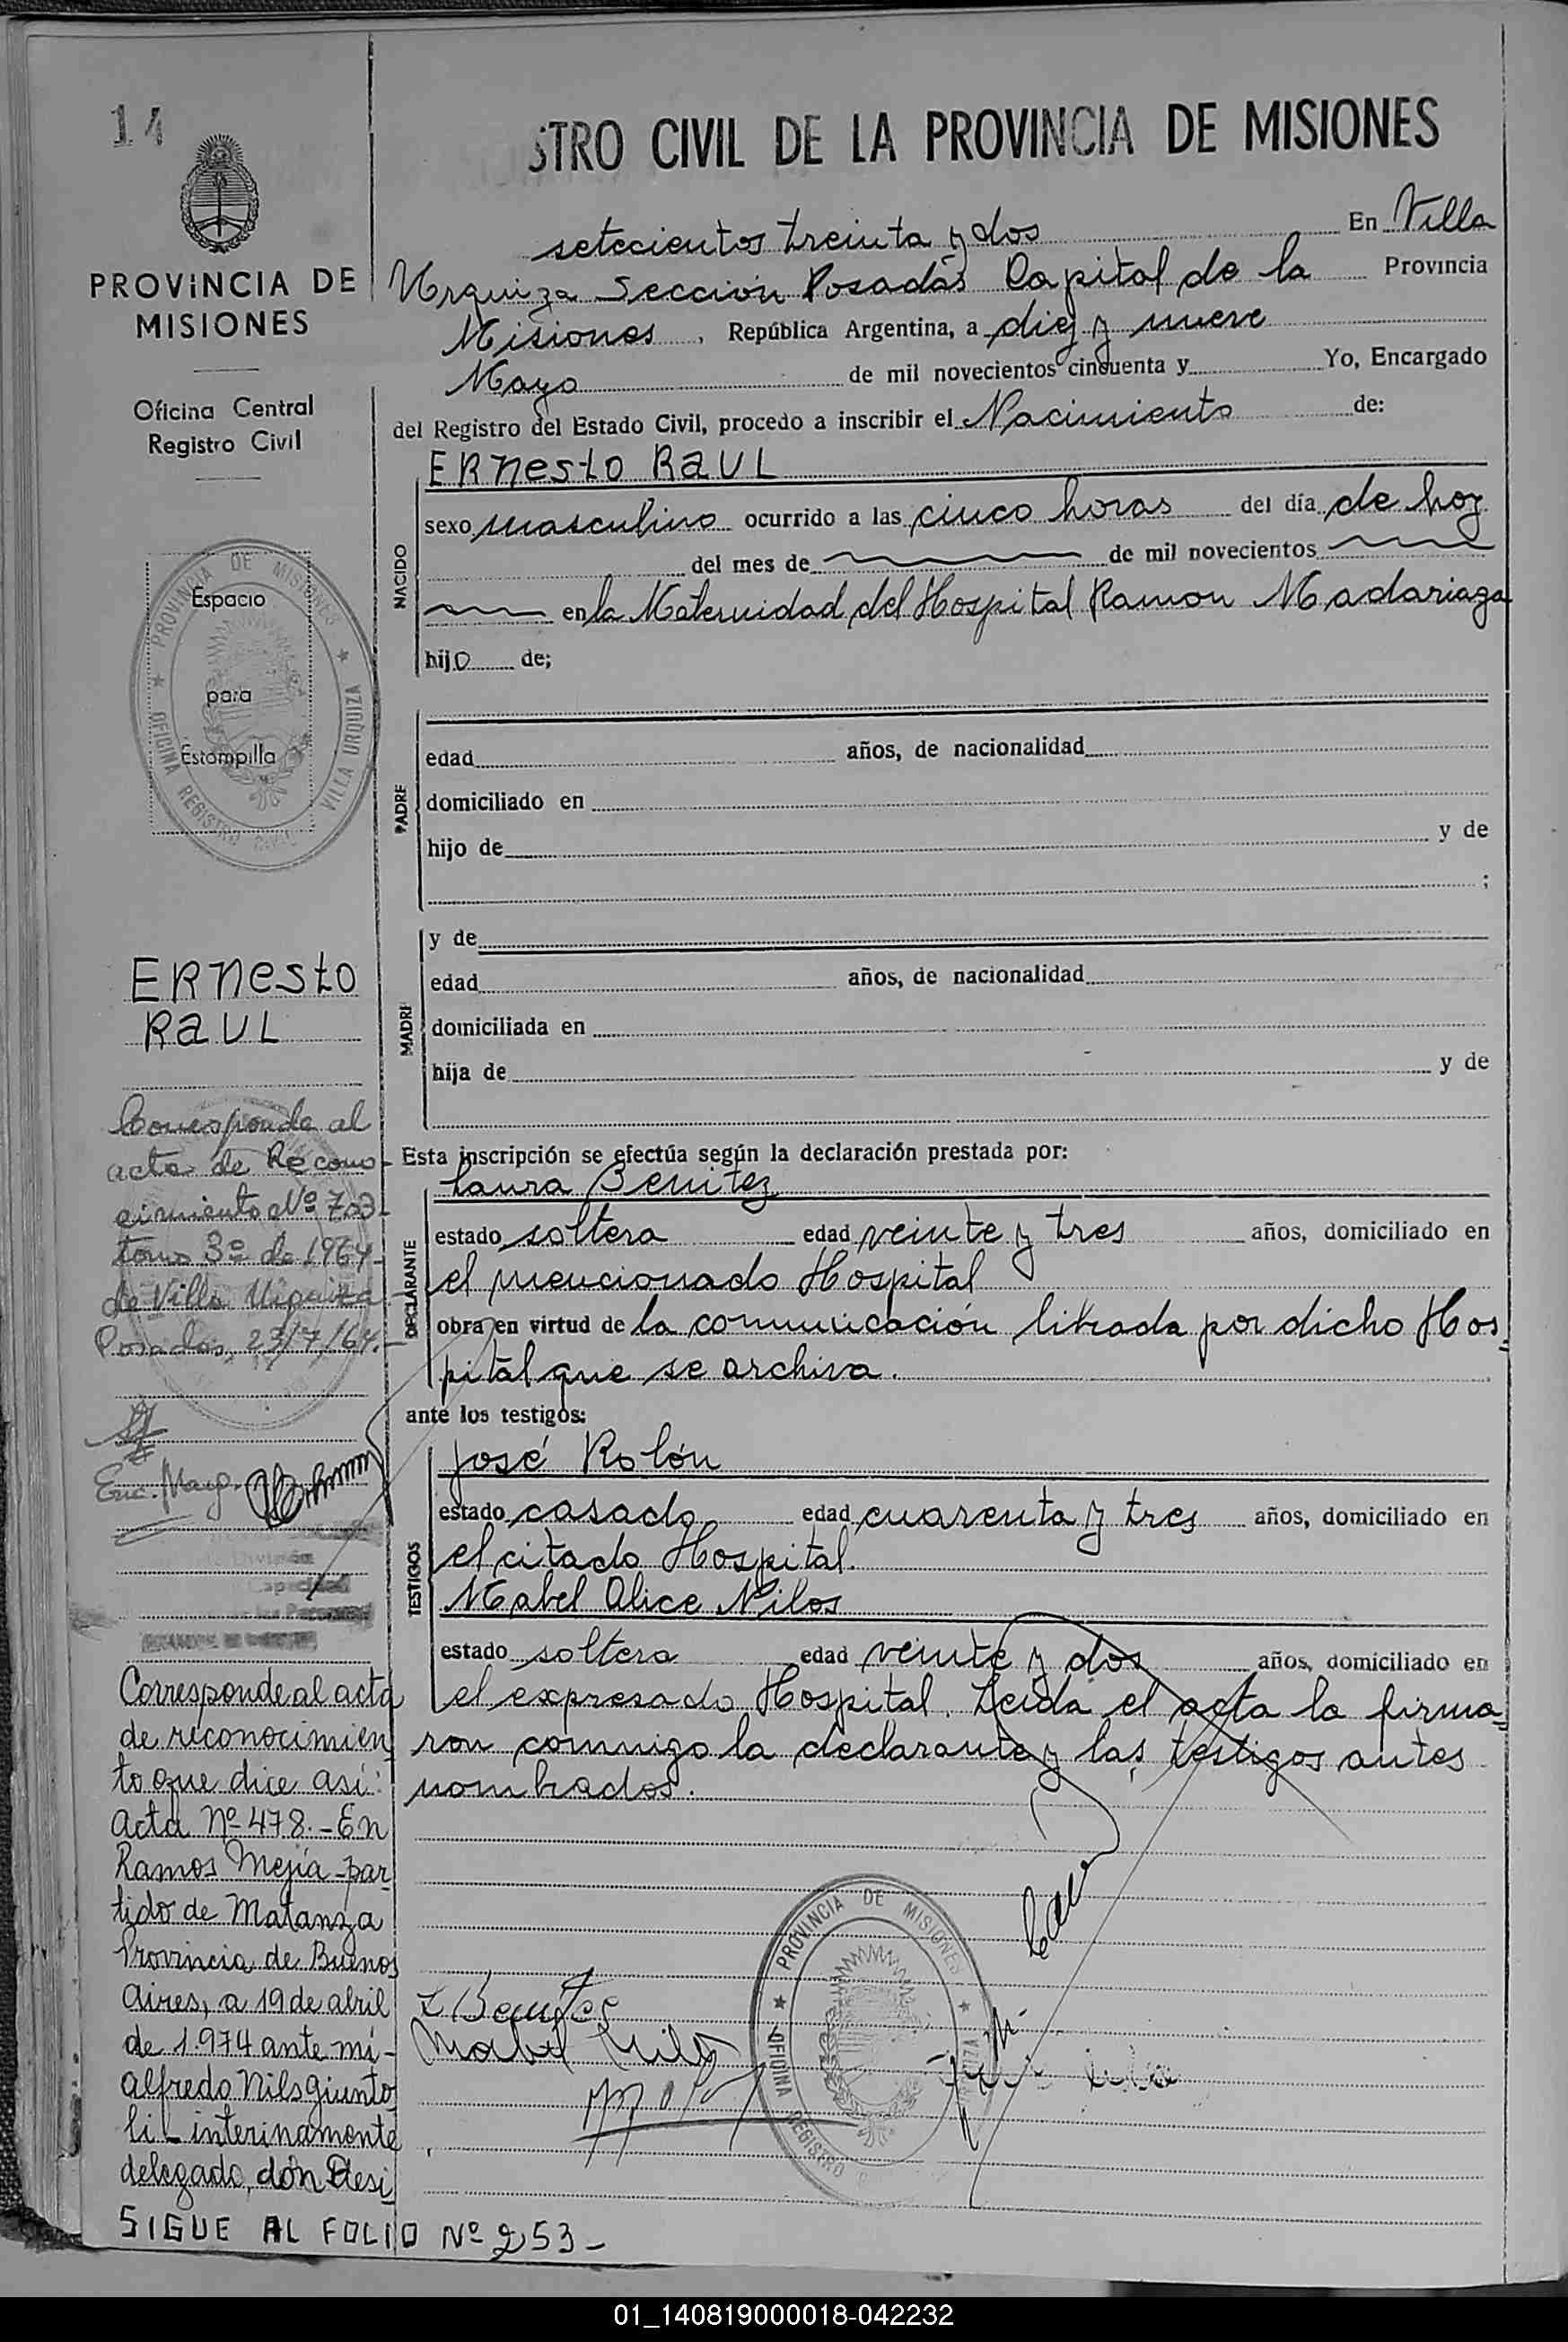 14
STRO CIVIL DE LA PROVINCIA DE MISIONES
PROVINCIA DE
MISIONES
Oficina Central
Registro Civil
setecientos treinta y dos En Villa
Urquiza Sección Posadas Capital de la Provincia
Misiones, República Argentina, a diez y nueve
Mayo de mil novecientos cincuenta y Yo, Encargado
del Registro del Estado Civil, procedo a inscribir el Nacimiento de:
NACIDO
ERnesto RaUL
sexo masculino ocurrido a las cinco horas del día de hoy
del mes de de mil novecientos
en la Maternidad del Hospital Ramon Madariaga
hijo de;
PROVINCIA DE MISIONES
OFICINA REGISTRO CIVIL VILLA URQUIZA
Espacio
para
Estampilla
PADRE
edad años, de nacionalidad
domiciliado en
hijo de y de
;
MADRE
y de
edad años, de nacionalidad
domiciliada en
hija de y de
ERnesto
RaUL
Corresponde al
acta de Recono-
cimiento Nº 703
tomo 3º de 1964-
de Villa Urquiza
Posadas, 23/7/64.-
Enc. Marg.
Esta inscripción se efectúa según la declaración prestada por:
DECLARANTE
Laura Benitez
estado soltera edad veinte y tres años, domiciliado en
el mencionado Hospital
obra en virtud de la comunicación librada por dicho Hos-
pital que se archiva.
ante los testigos:
TESTIGOS
José Rolón
estado casado edad cuarenta y tres años, domiciliado en
el citado Hospital.
Mabel Alice Nilos
estado soltera edad veinte y dos años, domiciliado en
el expresado Hospital. Leida el acta la firma-
ron conmigo la declarante y las testigos antes
nombrados.
Corresponde al acta
de reconocimien
to que dice así:
Acta Nº 478.- En
Ramos Mejía - par
tido de Matanza
Provincia de Buenos
Aires, a 19 de abril
de 1.974 ante mí-
Alfredo Nils Giunto
li - interinamente
delegado, don Desi
SIGUE AL FOLIO Nº 253-
L Benitez
Mabel Nilos
PROVINCIA DE MISIONES
OFICINA REGISTRO
01_140819000018-042232